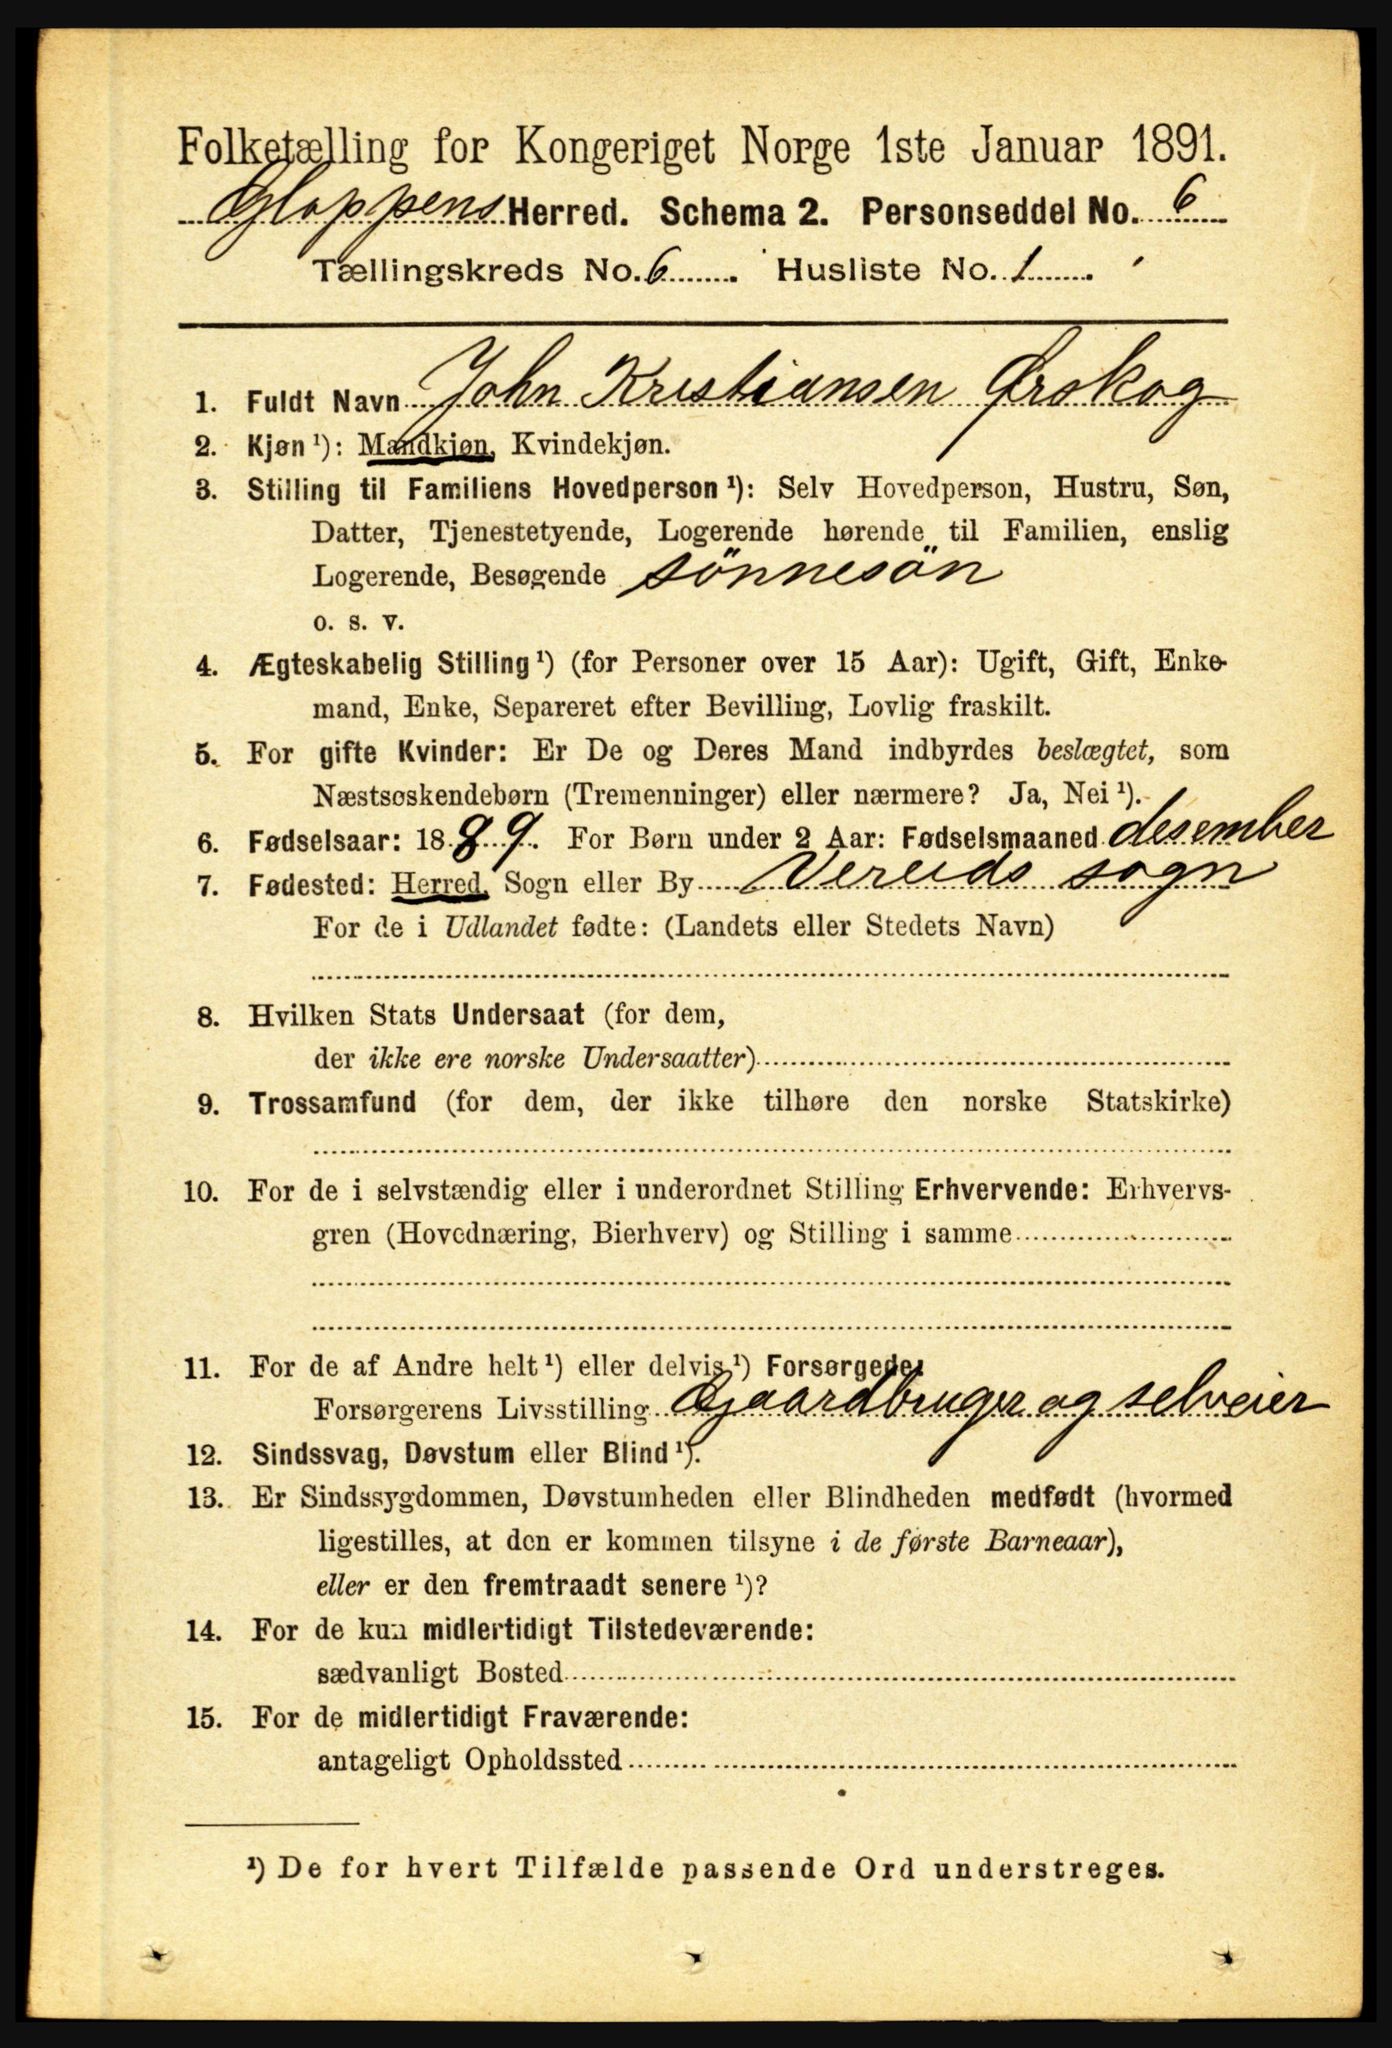 Folketælling for Kongeriget Norge 1ste Januar 1891.
Gloppens Herred. Schema 2. Personseddel No. 6
Tællingskreds No. 6. Husliste No. 1.
1. Fuldt Navn John Kristiansen Ørskog
2. Kjøn ¹): Mandkjøn, Kvindekjøn.
3. Stilling til Familiens Hovedperson ¹): Selv Hovedperson, Hustru, Søn,
Datter, Tjenestetyende, Logerende hørende til Familien, enslig
Logerende, Besøgende sönnesön
o. s. v.
4. Ægteskabelig Stilling ¹) (for Personer over 15 Aar): Ugift, Gift, Enke-
mand, Enke, Separeret efter Bevilling, Lovlig fraskilt.
5. For gifte Kvinder: Er De og Deres Mand indbyrdes beslægtet, som
Næstsøskendebørn (Tremenninger) eller nærmere? Ja, Nei ¹).
6. Fødselsaar: 1889. For Børn under 2 Aar: Fødselsmaaned desember
7. Fødested: Herred, Sogn eller By Vereids sogn
For de i Udlandet fødte: (Landets eller Stedets Navn)
8. Hvilken Stats Undersaat (for dem,
der ikke ere norske Undersaatter)
9. Trossamfund (for dem, der ikke tilhøre den norske Statskirke)
10. For de i selvstændig eller i underordnet Stilling Erhvervende: Erhvervs-
gren (Hovednæring, Bierhverv) og Stilling i samme
11. For de af Andre helt ¹) eller delvis ¹) Forsørgede:
Forsørgerens Livsstilling Gaardbruger og selveier
12. Sindssvag, Døvstum eller Blind ¹).
13. Er Sindssygdommen, Døvstumheden eller Blindheden medfødt (hvormed
ligestilles, at den er kommen tilsyne i de første Barneaar),
eller er den fremtraadt senere ¹)?
14. For de kun midlertidigt Tilstedeværende:
sædvanligt Bosted
15. For de midlertidigt Fraværende:
antageligt Opholdssted
¹) De for hvert Tilfælde passende Ord understreges.